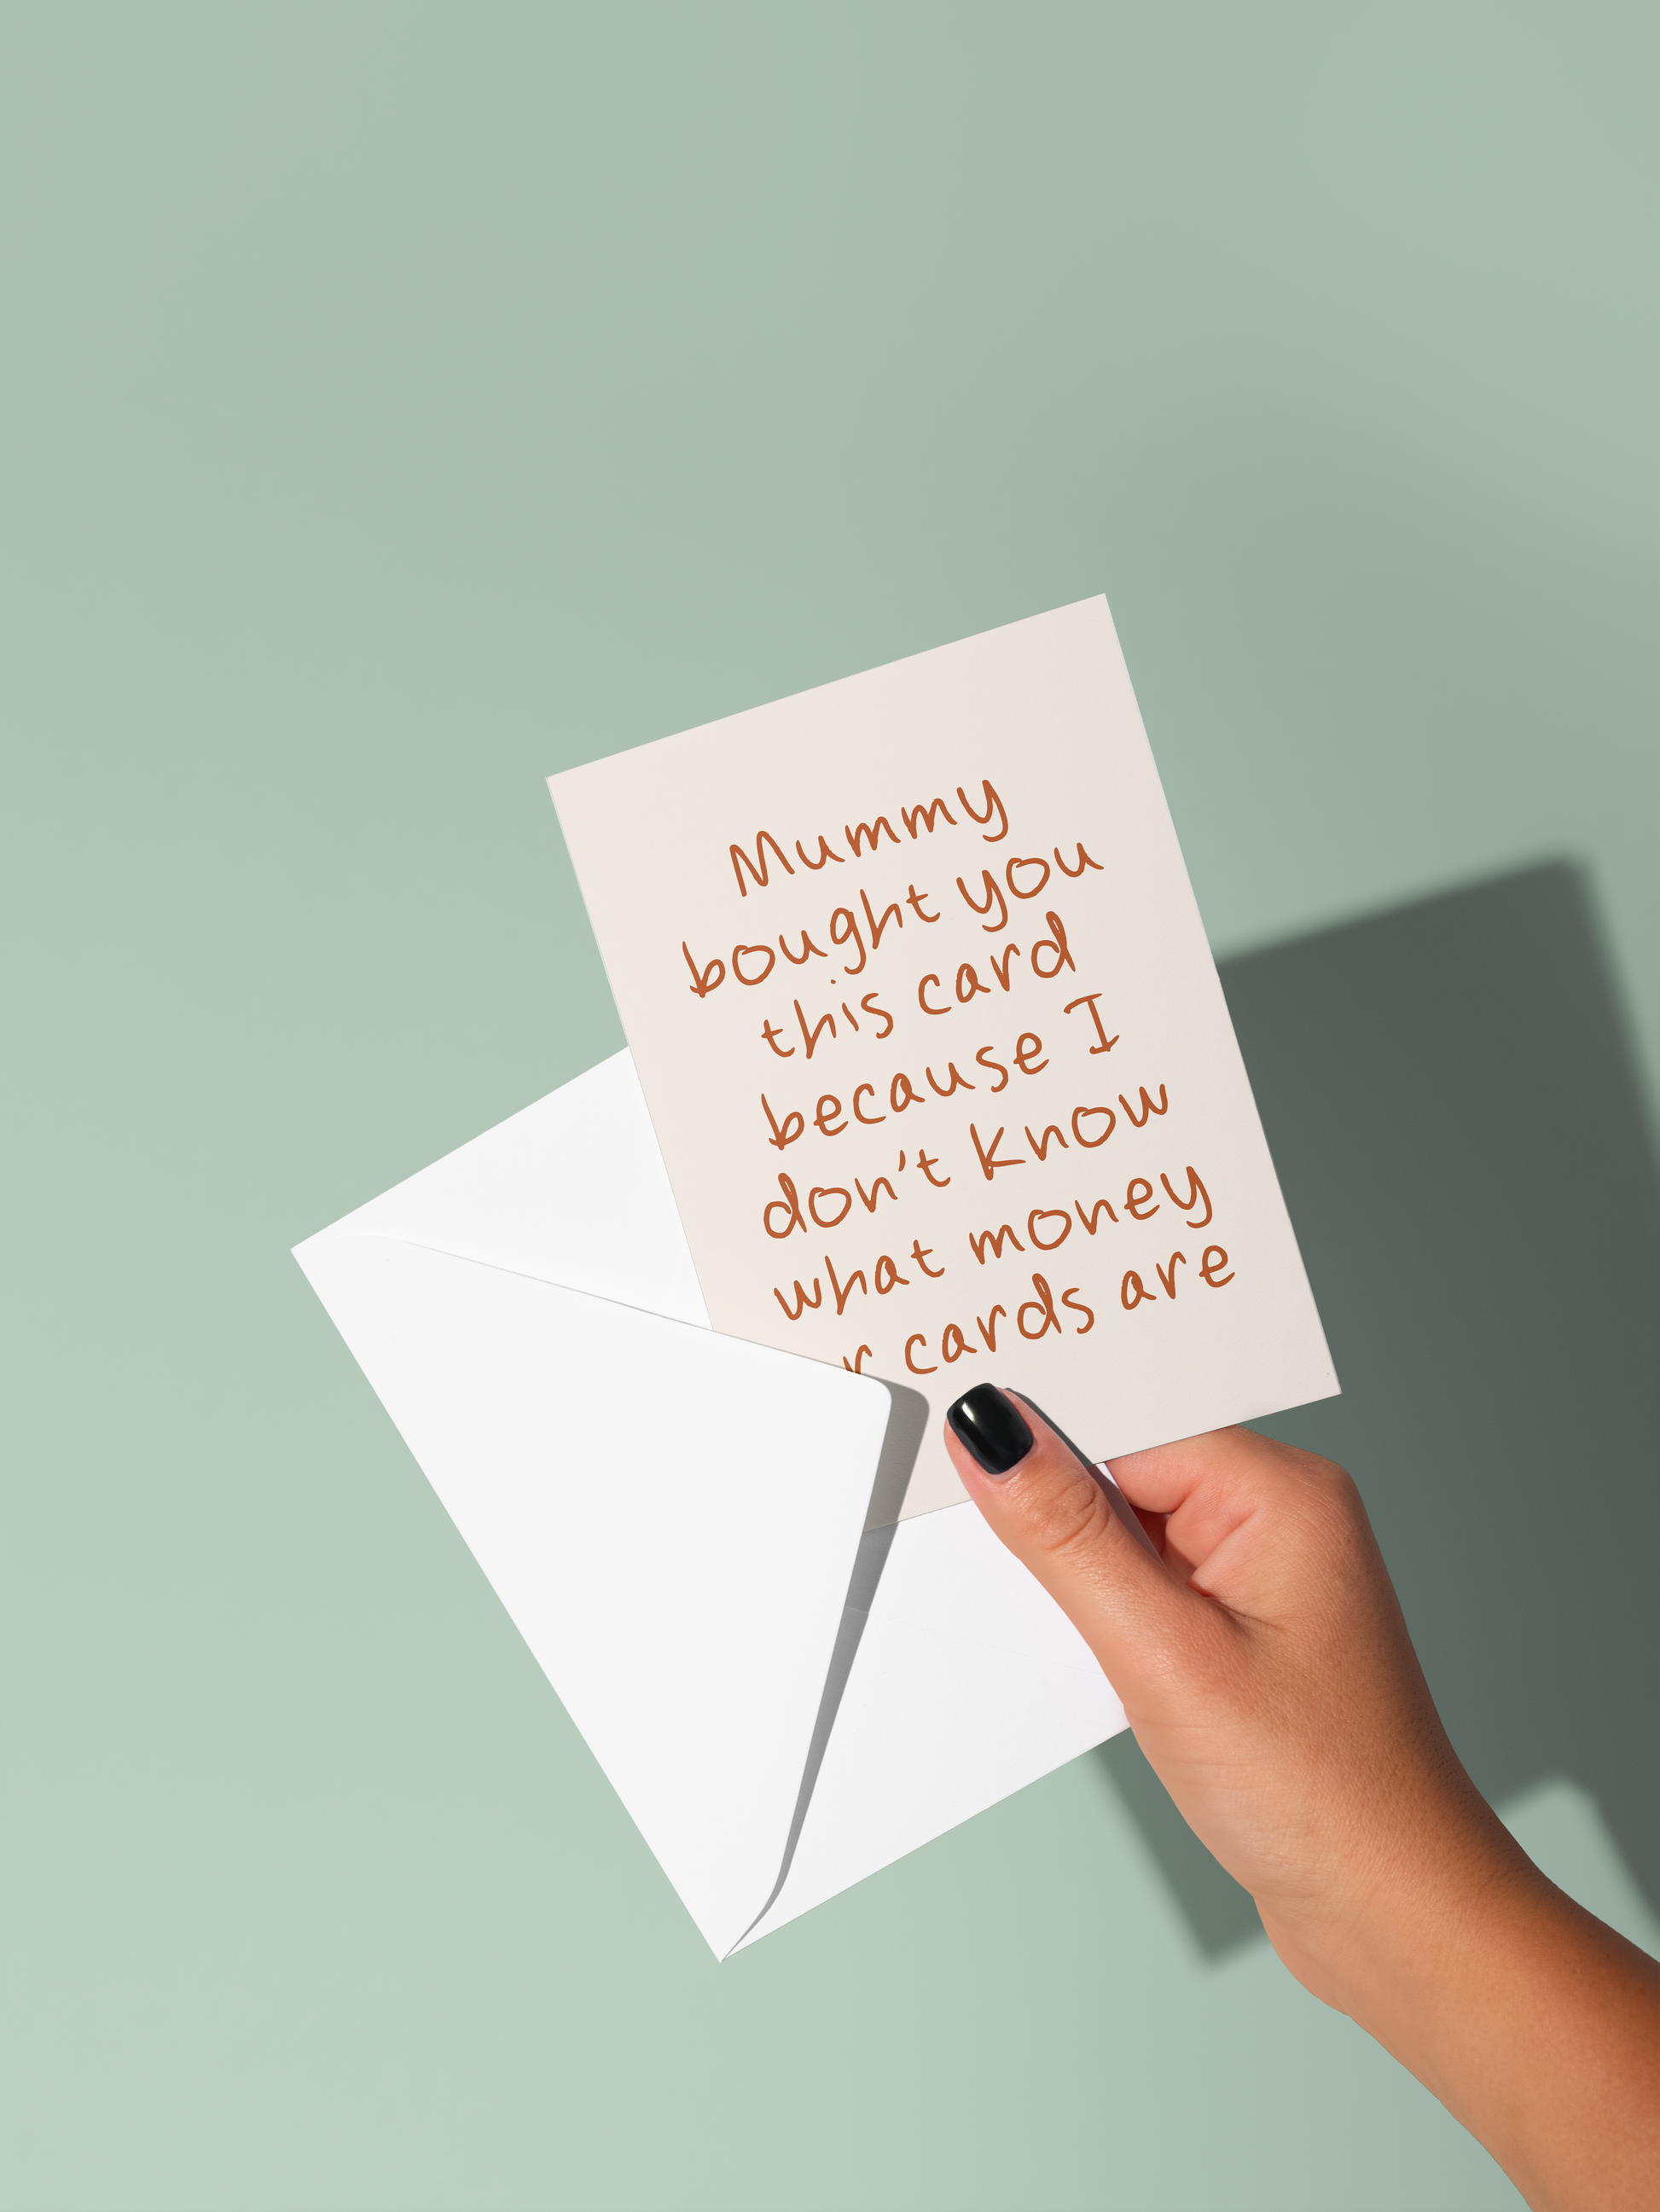 Mummy
bought you
this card
because I
don't know
what money
cards are